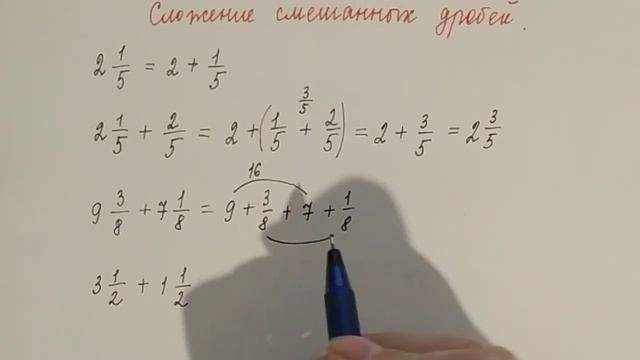 Сложение смешанных дробей.
2 1/5 = 2 + 1/5
3/5
2 1/5 + 2/5 = 2 + (1/5 + 2/5) = 2 + 3/5 = 2 3/5
16
9 3/8 + 7 1/8 = 9 + 3/8 + 7 + 1/8
3 1/2 + 1 1/2